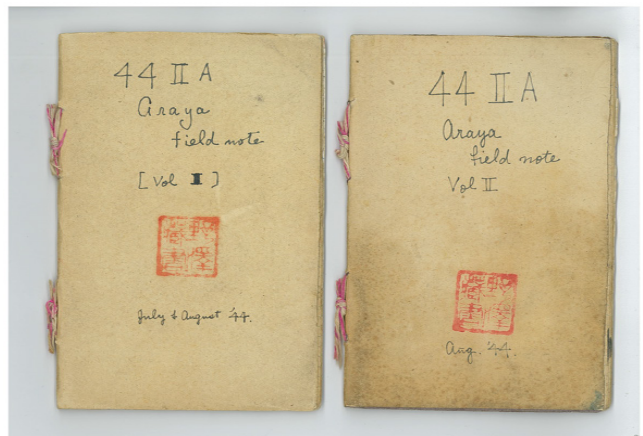 44 II A
Araya
field note
[Vol I]
July & August '44.
44 II A
Araya
field note
Vol II
Aug. '44.